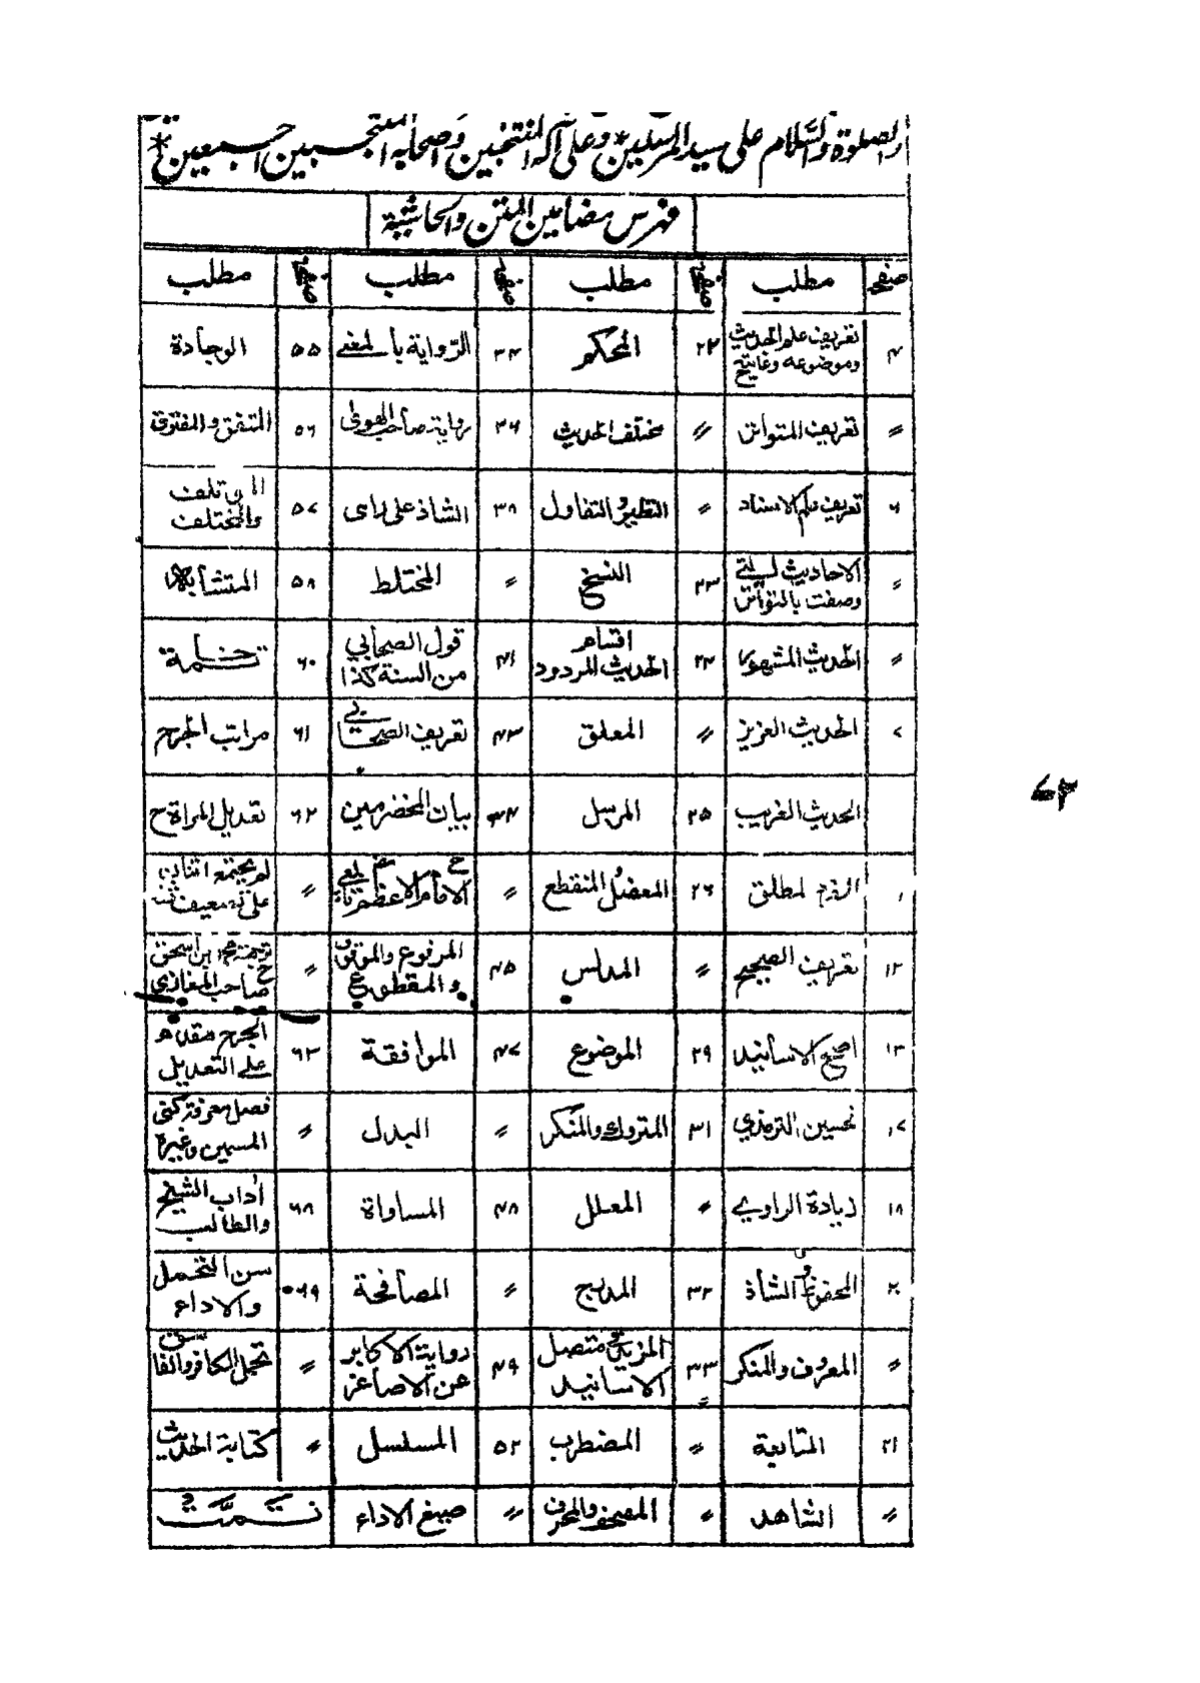 والصلوة والسلام على سيد المرسلين * وعلى آله المنتخبين واصحابه المنتجبين اجمعين *
فهرس مضامين المتن والحاشية
صفحه مطلب صفحه مطلب صفحه مطلب صفحه مطلب
۴ تعريف علم الحديث وموضوعه وغايته ۲۲ المحكم ۳۴ الرواية بالمعنى ۵۵ الوجادة
〃 تعريف المتواتر 〃 مختلف الحديث ۳۶ رواية صاحب الهوى ۵۶ المتفق والمفترق
۶ تعريف علم الاسناد 〃 التطير والتفاول ۳۸ الشاذ على راى ۵۷ المؤتلف والمختلف
〃 الاحاديث التي وصفت بالتواتر ۲۳ النسخ 〃 المختلط ۵۸ المتشابه
〃 الحديث المشهور ۲۴ اقسام الحديث المردود ۴۱ قول الصحابي من السنة كذا ۶۰ خاتمة
۷ الحديث العزيز 〃 المعلق ۴۳ تعريف الصحابي ۶۱ مراتب الجرح
الحديث الغريب ۲۵ المرسل ۴۴ بيان المخضرمين ۶۲ تعديل المراة ح
الفرد المطلق ۲۶ المعضل المنقطع 〃 الامام الاعظم تابعي ح 〃 لم يجتمع اثنان على تضعيف ثقة
۱۲ تعريف الصحيح 〃 المدلس ۴۵ المرفوع والموقوف والمقطوع 〃 ترجمة محمد بن اسحق صاحب المغازي ح
۱۳ اصح الاسانيد ۲۹ الموضوع ۴۷ الموافقة ۶۳ الجرح مقدم على التعديل
۱۷ تحسين الترمذي ۳۱ المتروك والمنكر 〃 البدل 〃 فصل معرفة كنى المسمين وغيره
۱۸ زيادة الراوي 〃 المعلل ۴۸ المساواة ۶۸ أداب الشيخ والطالب
۲۰ المحفوظ والشاذ ۳۲ المدرج 〃 المصافحة ۶۹ سن التحمل والاداء
〃 المعروف والمنكر ۳۳ المزيد في متصل الاسانيد ۴۹ رواية الاكابر عن الاصاغر 〃 تحمل الكافر والفاسق
۲۱ المتابعة 〃 المضطرب ۵۲ المسلسل 〃 كتابة الحديث
〃 الشاهد 〃 المصحف والمحرف 〃 صيغ الاداء تمت